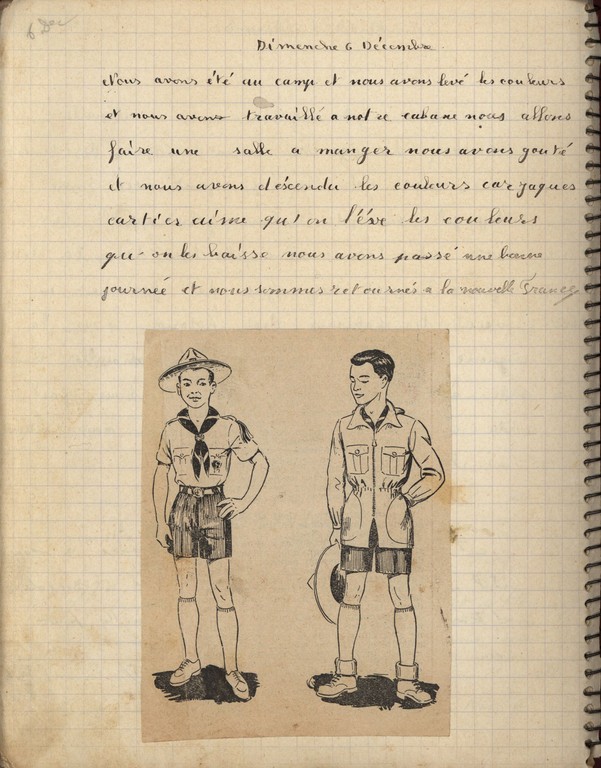 6 Dec
Dimenche 6 Décembre
Nous avons été au camp et nous avons levé les couleurs
et nous avons travaillé a notre cabane nous allons
faire une salle a manger nous avons gouté
et nous avons déscendu les couleurs car jaques
cartier aime qu'on l'éve les couleurs
qu'on les baisse nous avons passé une bonne
journée et nous sommes retournés a la nouvelle France